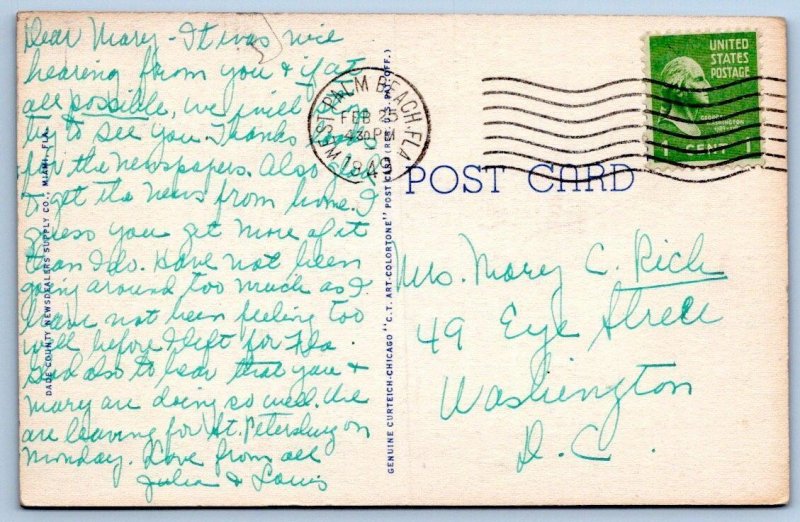 Dear Mary - It was nice
hearing from you & if at
all possible, we will
try to see you. Thanks
for the newspapers. Also glad
to get the news from home. I
guess you get more of it
than I do. Have not been
going around too much as I
have not been feeling too
well before I left for Fla.
Glad also to hear that you &
Mary are doing so well. We
are leaving for St. Petersburg on
Monday. Love from all
Julia & Louis
DADE COUNTY NEWSDEALERS SUPPLY CO., MIAMI, FLA.
GENUINE CURTEICH-CHICAGO "C.T. ART-COLORTONE" POST CARD (REG. U.S. PAT. OFF.)
WEST PALM BEACH, FLA
FEB 25
430 PM
UNITED
STATES
POSTAGE
GEORGE
WASHINGTON
1 CENT 1
POST CARD
Mrs. Mary C. Rich
49 Eye Street
Washington
D.C.